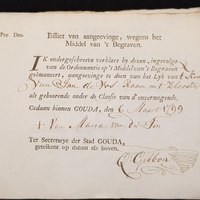 Pro Deo.
Billiet van aangeevinge, wegens het
Middel van 't Begraven.
IK ondergeschreeve verklaare by deezen, ingevolge
van de Ordonnantie op 't Middel van 't Begraven
geëmaneert, aangeevinge te doen van het Lyk van 't Kind
van Jan de Vos
als gehoorende onder de Classe van d'onvermogende.
Gedaan binnen GOUDA, den 6 Maart 1799
Maria van
Ter Secretarye der Stad GOUDA,
getekent op datum als boven.